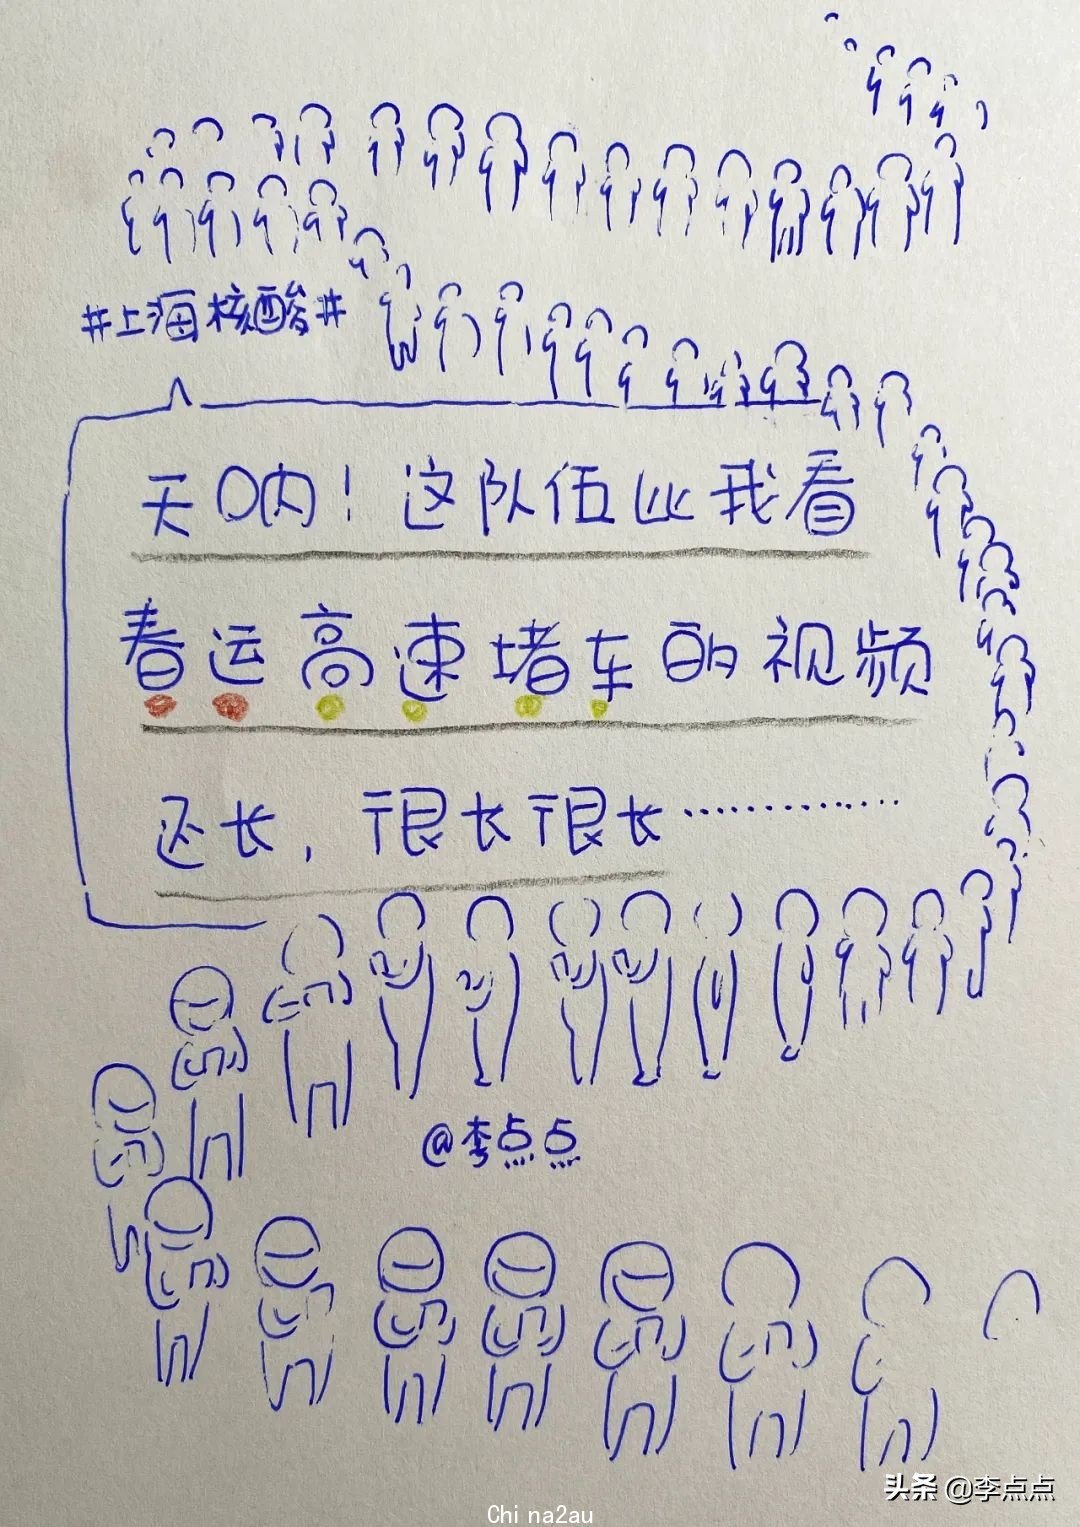 #上海核酸#
天呐！这队伍比我看
春运高速堵车的视频
还长，很长很长…………
@李点点
头条 @李点点
China2au